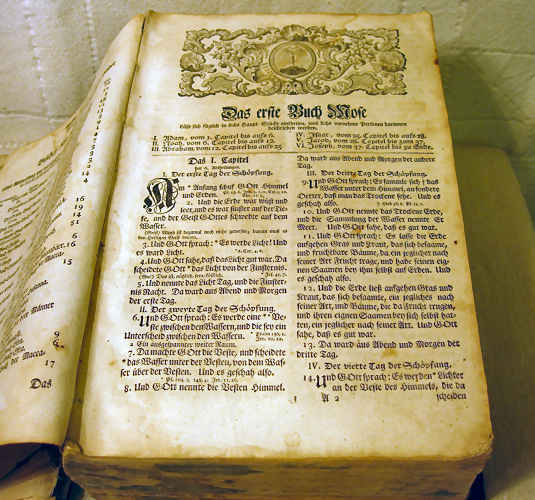 16
19
16
14
13
15
9
8
17
Das
Das erste Buch Mose
I. Adam, vom 1. Capitel bis aufs 6.
II. Noah, vom 6. Capitel bis aufs 12.
III. Abraham, vom 12. Capitel bis aufs 25
IV. Isaac, vom 25. Capitel bis aufs 28.
V. Jacob, vom 28. Capitel bis zum 37.
VI. Joseph, vom 37. Capitel bis zu Ende.
Das 1. Capitel
I. Der erste Tag der Schöpfung.
Am * Anfang schuf GOtt Himmel
und Erden.
2. Und die Erde war wüst und
leer, und es war finster auf der Tie-
fe, und der Geist GOttes schwebte auf dem
Wasser.
3. Und GOtt sprach: * Es werde Licht! Und
es ward Licht.
4. Und GOtt sahe, daß das Licht gut war. Da
scheidete GOtt * das Licht von der Finsterniß.
5. Und nennete das Licht Tag, und die Finster-
niß Nacht. Da ward aus Abend und Morgen
der erste Tag.
II. Der zweyte Tag der Schöpfung.
6. Und GOtt sprach: Es werde eine * Ve-
ste zwischen den Wassern, und die sey ein
Unterscheid zwischen den Wassern.
* Ein ausgespannter weiter Raum.
7. Da machte GOtt die Veste, und scheidete
* das Wasser unter der Vesten, von dem Was-
ser über der Vesten. Und es geschah also.
8. Und GOtt nennte die Vesten Himmel.
Da ward aus Abend und Morgen der andere
Tag.
III. Der dritte Tag der Schöpfung.
9. Und GOtt sprach: Es sammle sich * das
Wasser unter dem Himmel, an sondere
Oerter, daß man das Trockene sehe. Und es
geschah also.
10. Und GOtt nennte das Trockene Erde,
und die Sammlung der Wasser nennte Er
Meer. Und GOtt sahe, daß es gut war.
11. Und GOtt sprach: Es lasse die Erde
aufgehen Gras und Kraut, das sich besaame,
und fruchtbare Bäume, da ein jeglicher nach
seiner Art Frucht trage, und habe seinen eige-
nen Saamen bey ihm selbst auf Erden. Und
es geschah also.
12. Und die Erde ließ aufgehen Gras und
Kraut, das sich besaamte, ein jegliches nach
seiner Art, und Bäume, die da Frucht trugen,
und ihren eigenen Saamen bey sich selbst hat-
ten, ein jeglicher nach seiner Art. Und GOtt
sahe, daß es gut war.
13. Da ward aus Abend und Morgen der
dritte Tag.
IV. Der vierte Tag der Schöpfung.
14. Und GOtt sprach: Es werden * Lichter
an der Veste des Himmels, die da
A 2
scheiden